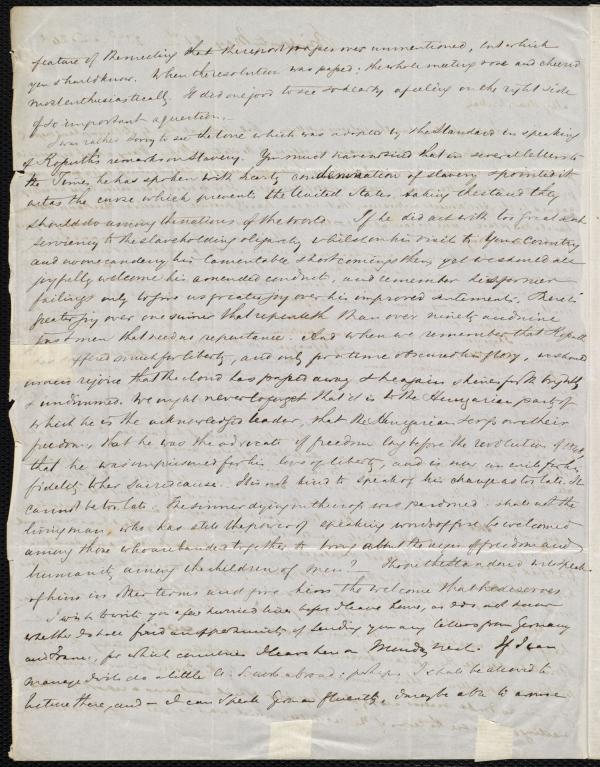 feature of the meeting that the report papers was unmentioned, but which
you should know. When the resolution was passed; the whole meeting rose and cheered
most enthusiastically. It did one good to see so hearty a feeling on the right side
of so important a question.
I was rather sorry to see the tone which was adopted by the Standard in speaking
of Kossuth's remarks on Slavery. You must have noticed that in several letters to
the Times, he has spoken with hearty condemnation of slavery & pointed it
out as the curse which prevents the United States, taking the stand they
should do among the nations of the world. If he did act with too great sub
serviency to the slaveholding oligarchy whilst on his visit to your Country
and no one can deny his lamentable shortcomings then, yet we should all
joyfully welcome his amended conduct, and remember his former
failings only to give us greater joy over his improved sentiments. There is
greater joy over one sinner that repenteth than over ninety and nine
just men that need no repentance. And when we remember that Kossuth
has suffered much for liberty, and only for a time obscured his glory, we should
rejoice that the cloud has passed away & he again shines forth brightly
& undimmed. We ought never to forget that it is to the Hungarian party of
which he is the acknowledged leader, that the Hungarian serfs owe their
freedom, that he was the advocate of freedom long before the revolution of 1848,
that he was imprisoned for his love of liberty, and is now an exile for his
fidelity to her sacred cause. It is not kind to speak of his change as too late. It
cannot be too late. The sinner dying on the cross was pardoned - shall not the
living man, who has still the power of speaking words of fire, be welcomed
among those who are banded together to bring about the reign of freedom and
humanity among the children of men? — I hope the Standard will speak
of him in other terms and give him the welcome that he deserves
I wish to write you a few hurried lines before I leave home, as I do not know
whether I shall find an opportunity of sending you any letters from Germany
and France, for which countries I leave here on Monday next. If I can
manage I wish to do a little A. S. work abroad; perhaps I shall be allowed to
lecture there, and — I can speak German fluently, I may be able to arouse